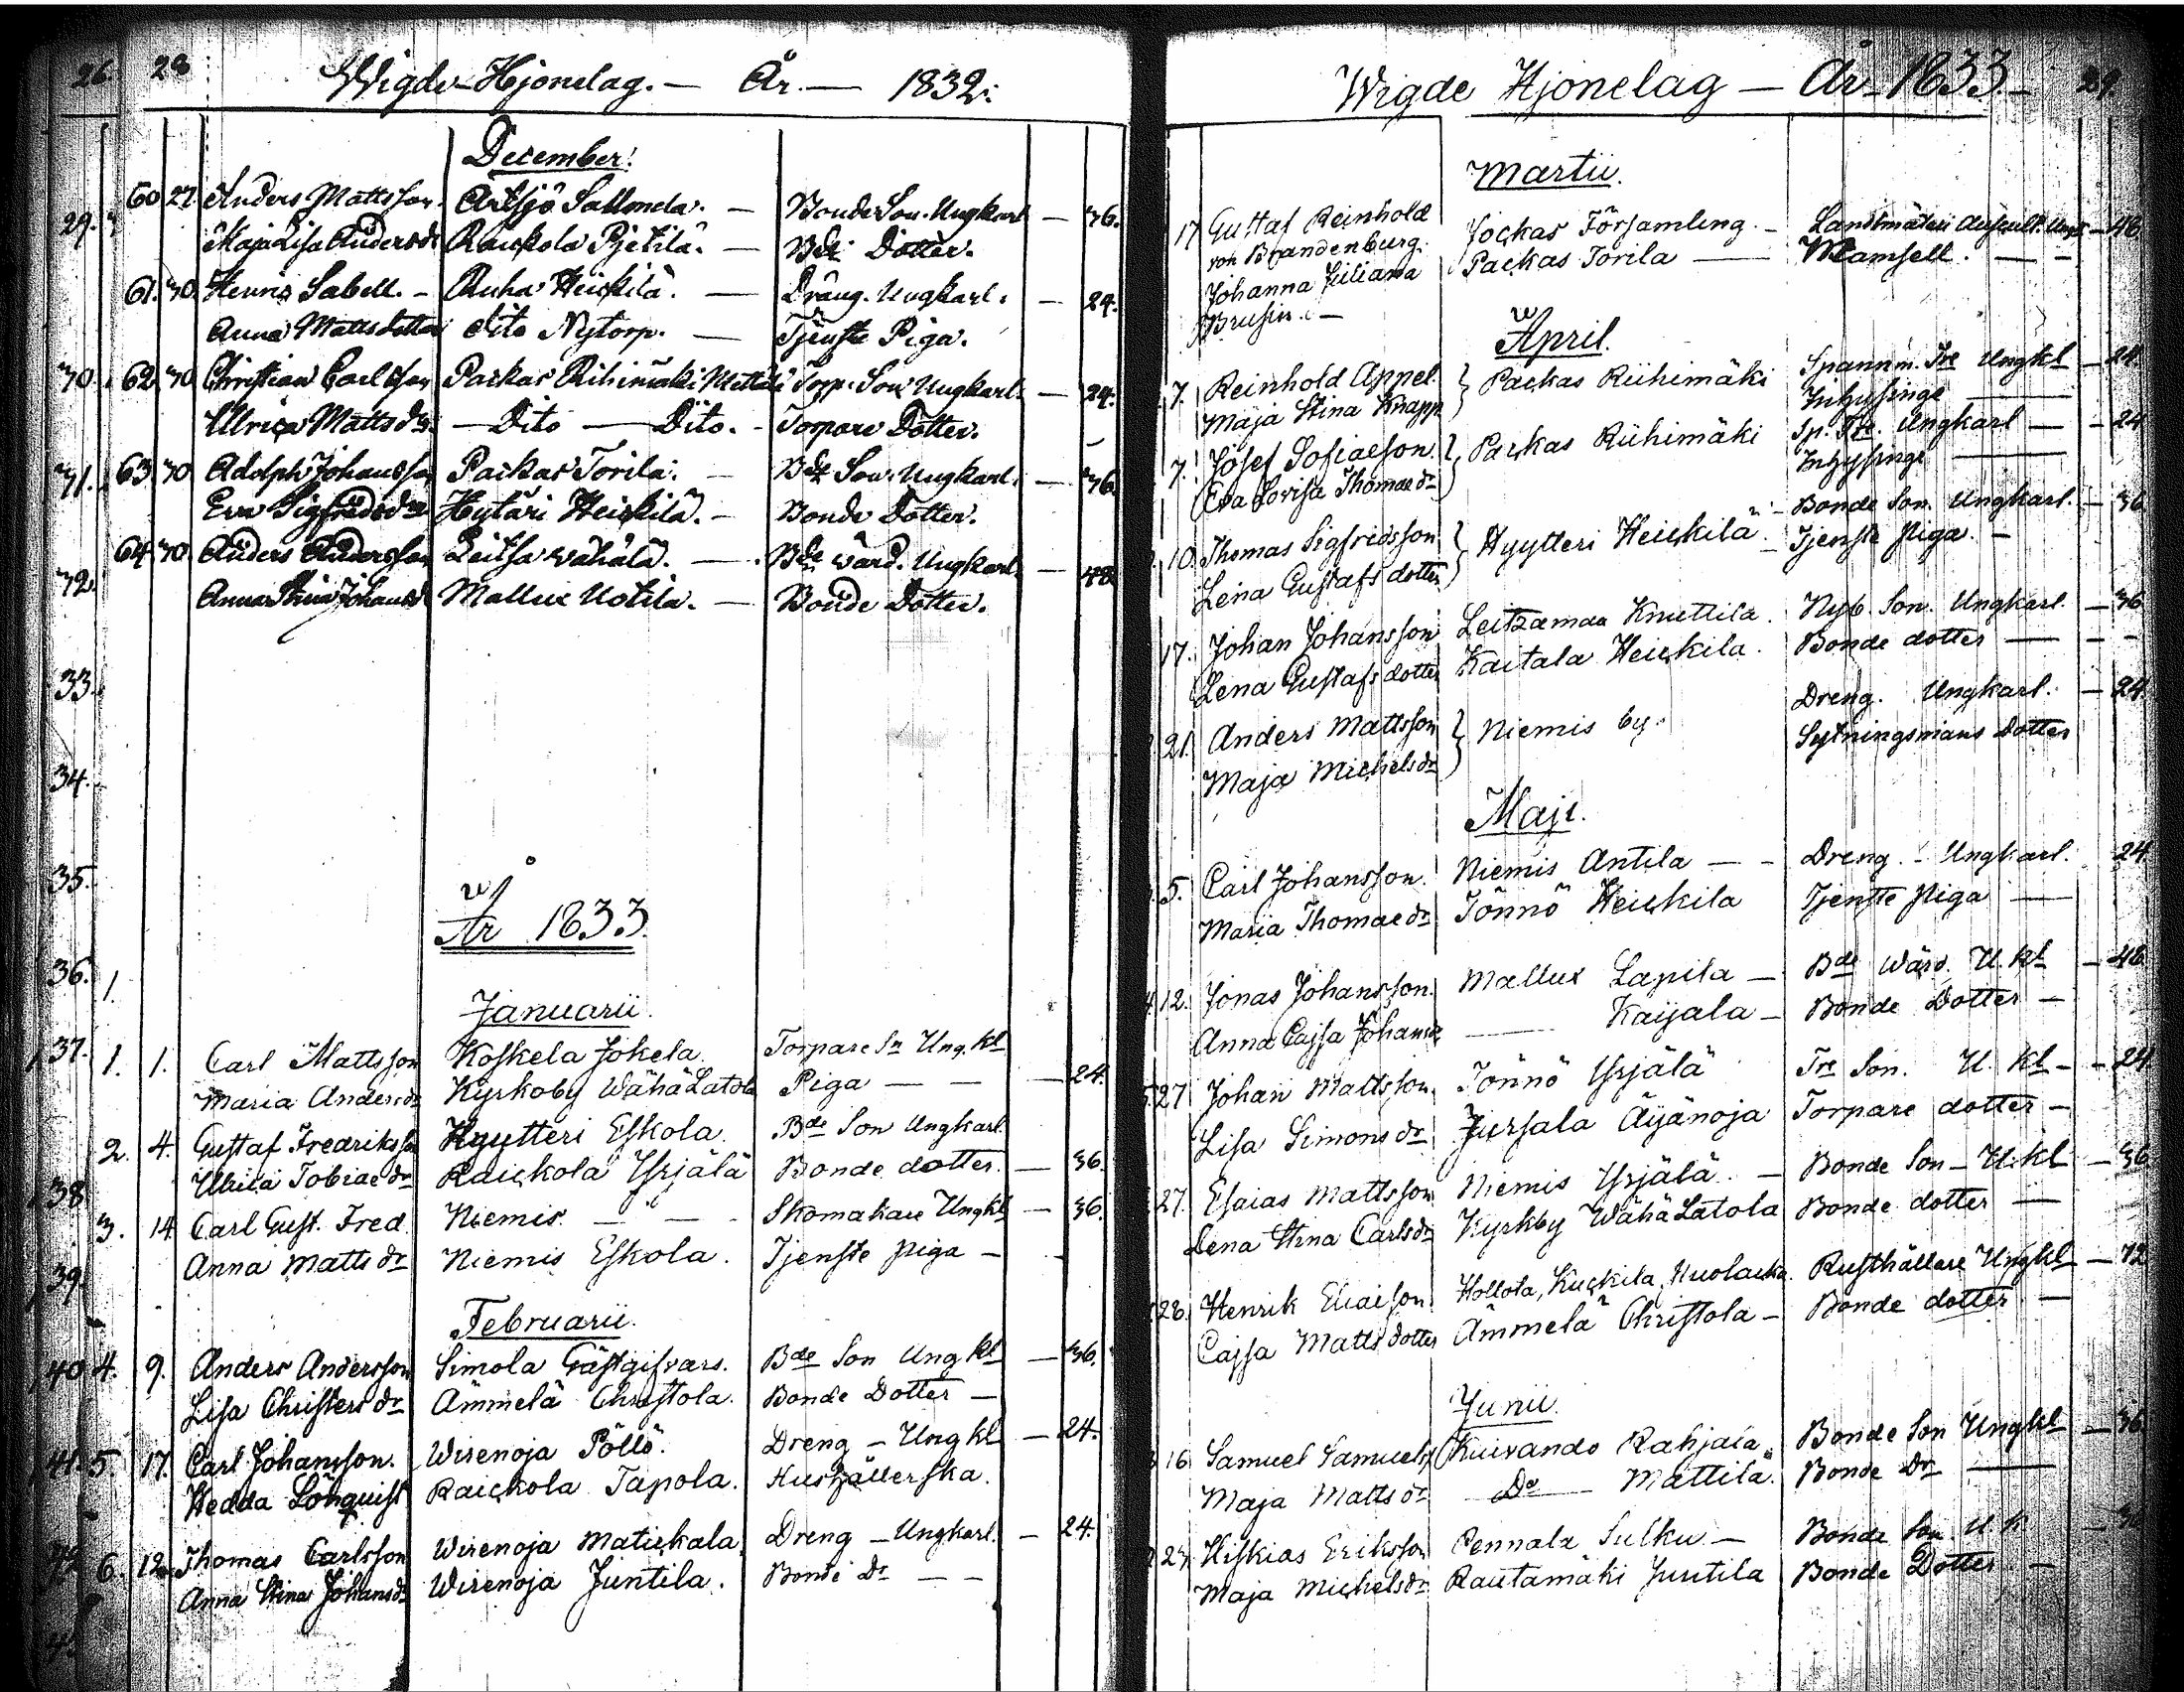 28 Wigde Hjonelag. — År. — 1832.
December.
60 27 Anders Mattsson. Artsjö Sallmela. — Bonde Son. Ungkarl — 36.
Maja Lisa Andersdr Raickola Pjetilä. — Bde Dotter.
61. 30 Henric Sabell. — Ruha Heickilä. — Dräng. Ungkarl. — 24.
Anna Mattsdotter dito Nytorp. — Tjenste Piga.
62 30 Christian Carlsson Packas Rihimäki Torp. Son Ungkarl. — 24.
Ulrica Mattsdr. — Dito — Dito. — Torpare Dotter.
63 30 Adolph Johansson Packas Torila. — Bde Son. Ungkarl. — 36.
Eva Sigfridsdr Hytäri Heickilä. — Bonde Dotter.
64 30. Anders Andersson Leitsa Wähälä. — Bde Wärd. Ungkarl. — 48
Anna Stina Johansd Mallux Uotila. — Bonde Dotter.
År 1833.
Januarii.
1. 1. Carl Mattsson Koskela Jokela. Torpare Sn Ung.kl
Maria Andersdr Kyrkoby Wähä Latola Piga — — 24.
2. 4. Gustaf Fredriksson Hyytteri Eskola. Bde Son Ungkarl
Ulrica Tobiaedr Raickola Yrjälä Bonde dotter. — 36.
3. 14 Carl Gust. Fred. Niemis. — Skomakare Ungkl — 36.
Anna Mattsdr Niemis Eskola. Tjenste piga —
Februarii.
4. 9. Anders Andersson Simola Gästgifvars. Bde Son Ungkl — 36.
Lisa Christersdr Ämmelä Christola. Bonde Dotter —
5 17. Carl Johansson. Wirenoja Pöllö. Dreng — Ungkl — 24.
Hedda Lönquist Raickola Tapola. Hushållerska.
6. 12. Thomas Carlsson Wirenoja Matickala. Dreng — Ungkarl. — 24.
Anna Stina Johansdr Wirenoja Juntila. Bonde Dr — —
Wigde Hjonelag — År 1833 — 29.
Martii.
17 Gustaf Reinhold Jockas Församling. — Landtmäteri Auscult. Ungk — 48
von Brandenburg. Packas Torila — Mamsell. — —
Johanna Juliana
Brusin. —
April.
7. Reinhold Appel. } Packas Riihimäki Spannm. Tre Ungkl — 24
Maja Stina Knapp Inhysinge —
7. Josef Sofiaeson. } Packas Riihimäki Sp. Tre. Ungkarl — 24
Eva Lovisa Thomaedr Inhysinge —
10. Thomas Sigfridsson } Hyytteri Heickilä. — Bonde Son. Ungkarl. — 36
Lena Gustafsdotter Tjenste Piga. —
17. Johan Johansson Leitzamaa Knuttila. Nyb. Son. Ungkarl. — 36
Lena Gustafsdotter Kaitala Heickila. Bonde dotter — — —
21. Anders Mattsson } Niemis by. Dreng. Ungkarl. — 24.
Maja Michelsdr Sytningsmans Dotter
Maji.
5. Carl Johansson. Niemis Antila — — Dreng. — Ungkarl. 24.
Maria Thomaedr Tönnö Heickila Tjenste piga —
12. Jonas Johansson. Mallux Lapila — Bde Wärd. U. kl — 48
Anna Cajsa Johansdr — Kaijala — Bonde Dotter —
27 Johan Mattsson. Tönnö Yrjälä Tre Son. U. kl — 24
Lisa Simonsdr Jursala Äijänoja Torpare dotter —
27. Esaias Mattsson Niemis Yrjälä. — Bonde Son — U. kl — 36
Lena Stina Carlsdr Kyrkby Wähä Latola Bonde dotter —
28. Henrik Eliaeson Hollola, Kuckila, Rusthållare Ungkl — 72
Cajsa Mattsdotter Ämmelä Christola — Bonde dotter. —
Junii.
16 Samuel Samuels Kuivando Rahjala. Bonde Son Ungkl — 36
Maja Mattsdr — Do — Mattila. Bonde Dr —
23 Hiskias Eriksson Pennala Sulku — Bonde Son. U. k — 36
Maja Michelsdr Rautamäki Juntila Bonde Dotter —